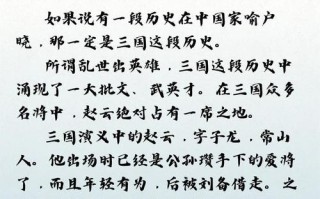 如果说有一段历史在中国家喻户
晓，那一定是三国这段历史。
所谓乱世出英雄，三国这段历史中
涌现了一大批文、武英才。在三国众多
名将中，赵云绝对占有一席之地。
三国演义中的赵云，字子龙，常山
人。他出场时已经是公孙瓒手下的爱将
了，而且年轻有为，后被刘备借走。之